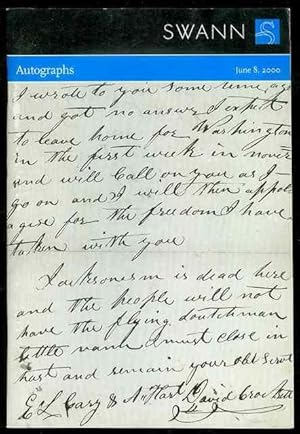 SWANN
Autographs June 8, 2000
I wrote to you some time ago
and got no answer I expect
to leave home for Washington
in the first week in nover
and will Call on you as I
go on and I will then appol
agise for the freedom I have
taken with you
Jacksonesm is dead here
and the people will not
have the flying doutchman
little vann I must close in
hast and remain your Obt Servt
E L Cary & A Hart David Crockett